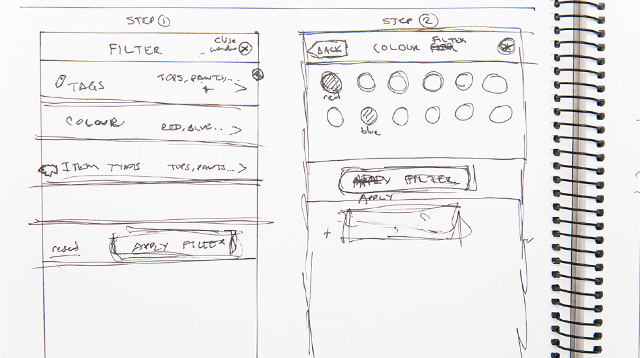 STEP 1
FILTER
close
window
X
TAGS
TOPS, PANTS... >
COLOUR
RED, BLUE... >
ITEM TYPES
TOPS, PANTS... >
reset
APPLY FILTER
STEP 2
BACK
COLOUR FILTER
red
blue
APPLY FILTER
APPLY